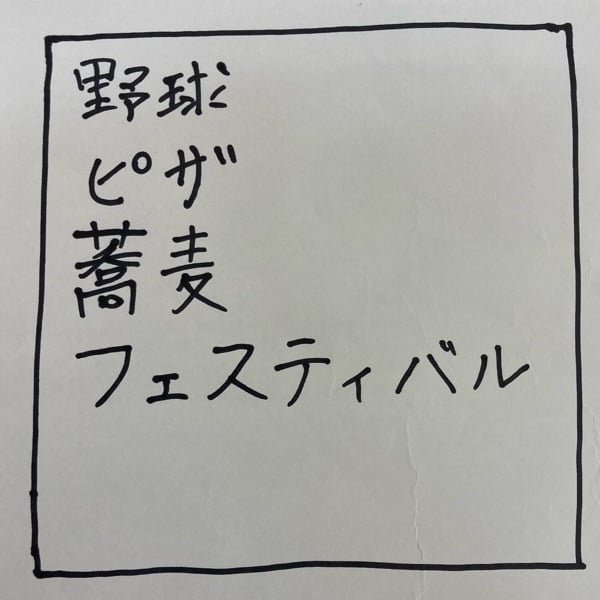 野球
ピザ
蕎麦
フェスティバル